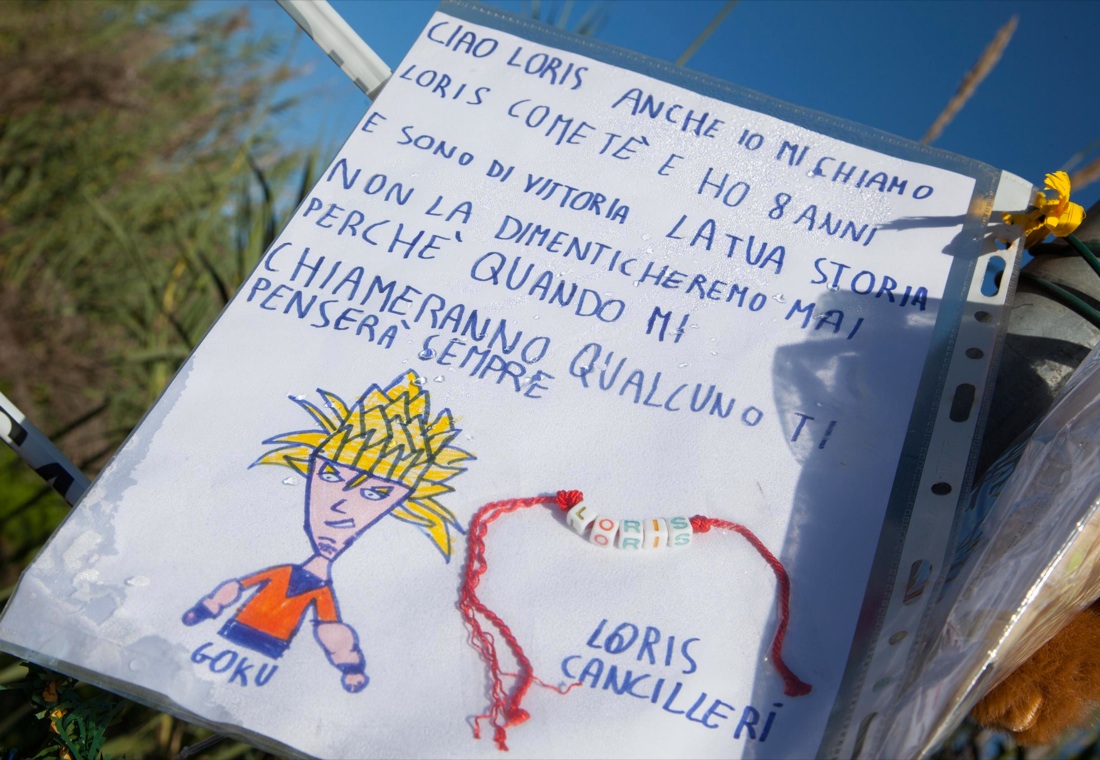 CIAO LORIS ANCHE IO MI CHIAMO
LORIS COME TÈ E HO 8 ANNI
E SONO DI VITTORIA LA TUA STORIA
NON LA DIMENTICHEREMO MAI
PERCHÈ QUANDO MI
CHIAMERANNO QUALCUNO TI
PENSERÀ SEMPRE
LORIS
GOKU
LORIS
CANCILLERI